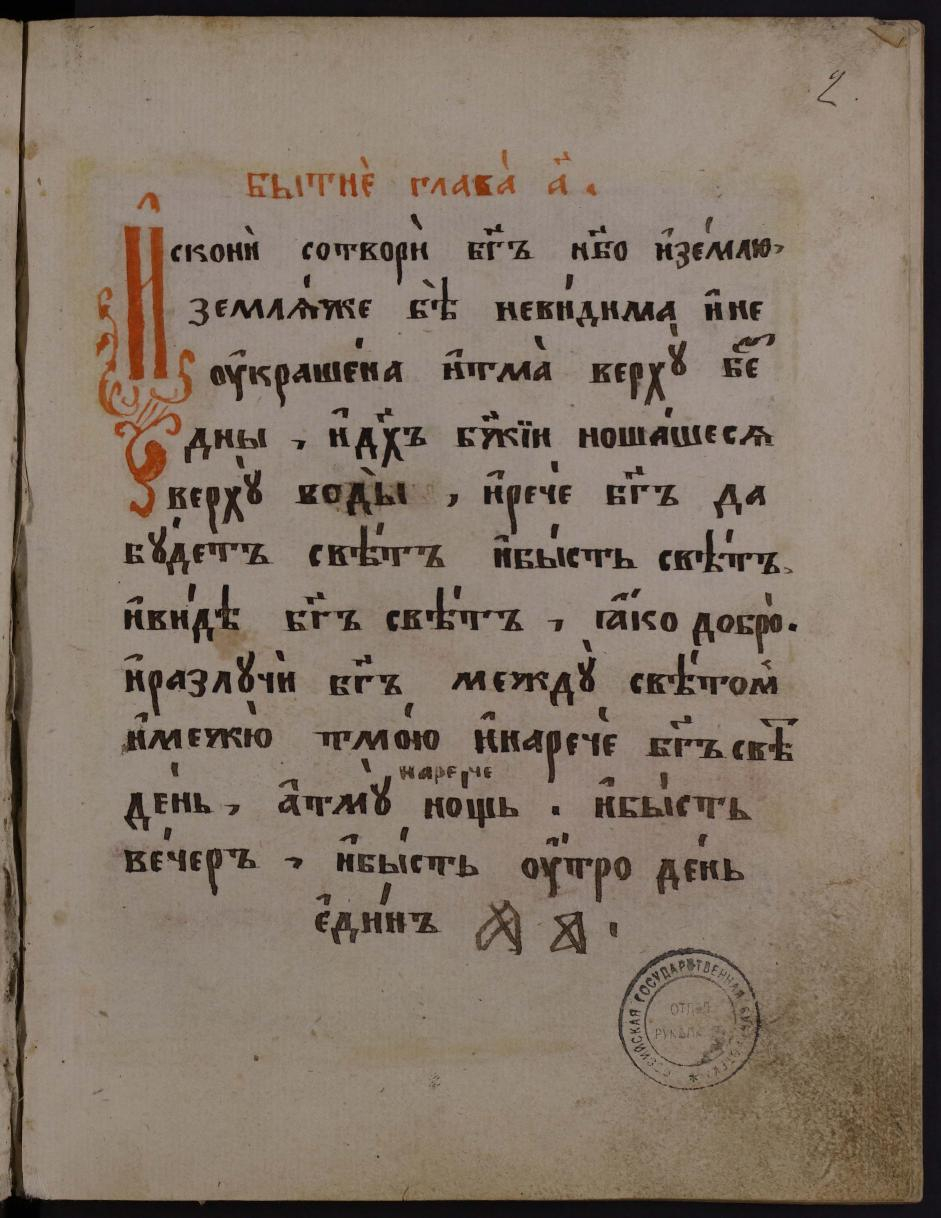 2.
БЫТИЀ ГЛАВА̀ А҃.
И҆сконѝ сотворѝ бг҃ъ нб҃о и҆зе́млю,
землѧ́же бѣ̀ неви́дима и҆не
оу҆краше́на и҆тма̀ верхꙋ̀ бе́з
дны , и҆дх҃ъ бж҃їи ноша́шесѧ
верхꙋ̀ воды̀ , и҆рече́ бг҃ъ да
бꙋ́детъ свѣ́тъ и҆бы́сть свѣ́тъ,
и҆ви́дѣ бг҃ъ свѣ́тъ , ꙗ҆́ко добро̀.
и҆разлꙋчѝ бг҃ъ междꙋ̀ свѣ́том
и҆межю̀ тмо́ю и҆нарече́ бг҃ъ свѣ́т
де́нь, а҆тмꙋ̀ нарече нощь . и҆бы́сть
ве́черъ , и҆бы́сть оу҆́тро де́нь
е҆ди́нъ
РОССИЙСКАЯ ГОСУДАРСТВЕННАЯ БИБЛИОТЕКА
ОТДЕЛ
РУКОПИСЕЙ